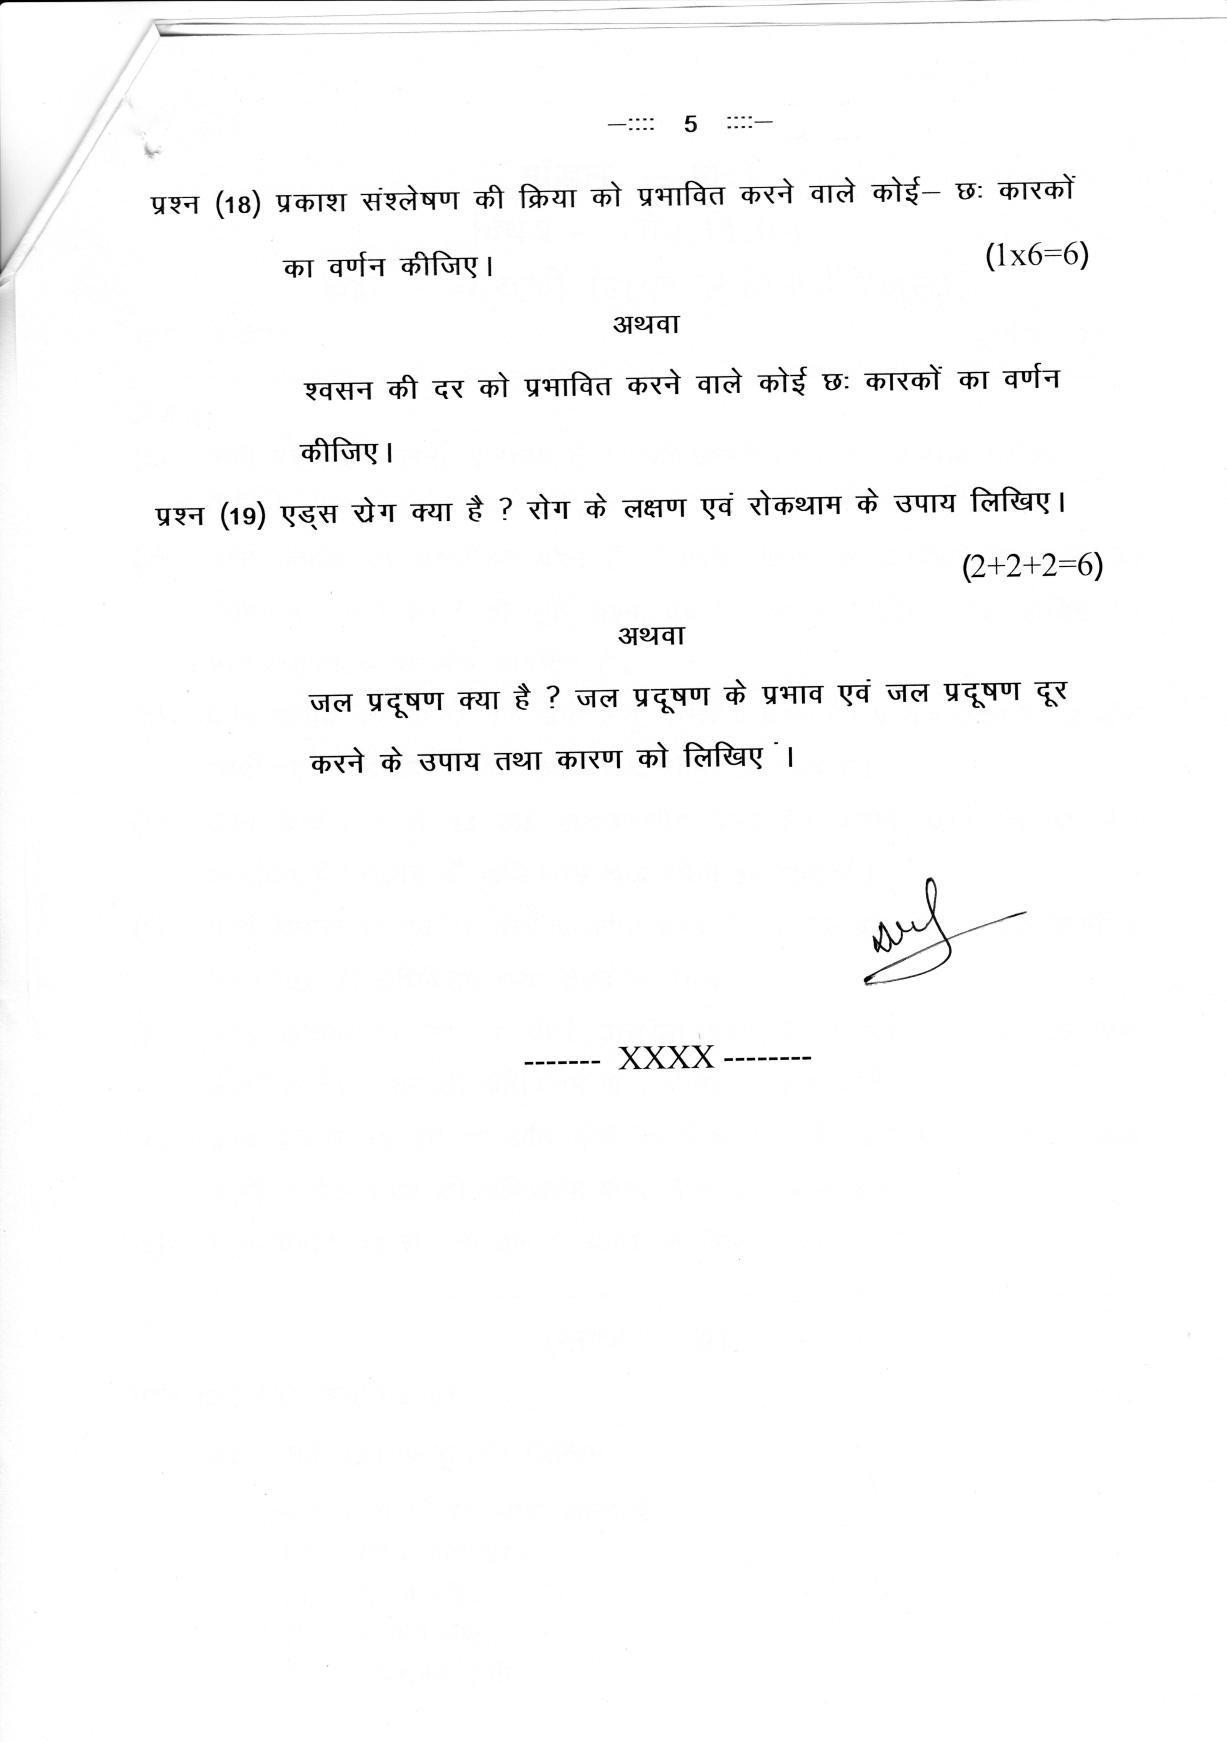 —:::: 5 ::::—
प्रश्न (18) प्रकाश संश्लेषण की क्रिया को प्रभावित करने वाले कोई– छः कारकों
का वर्णन कीजिए। (1x6=6)
अथवा
श्वसन की दर को प्रभावित करने वाले कोई छः कारकों का वर्णन
कीजिए।
प्रश्न (19) एड्स रोग क्या है ? रोग के लक्षण एवं रोकथाम के उपाय लिखिए।
(2+2+2=6)
अथवा
जल प्रदूषण क्या है ? जल प्रदूषण के प्रभाव एवं जल प्रदूषण दूर
करने के उपाय तथा कारण को लिखिए ।
------- XXXX --------